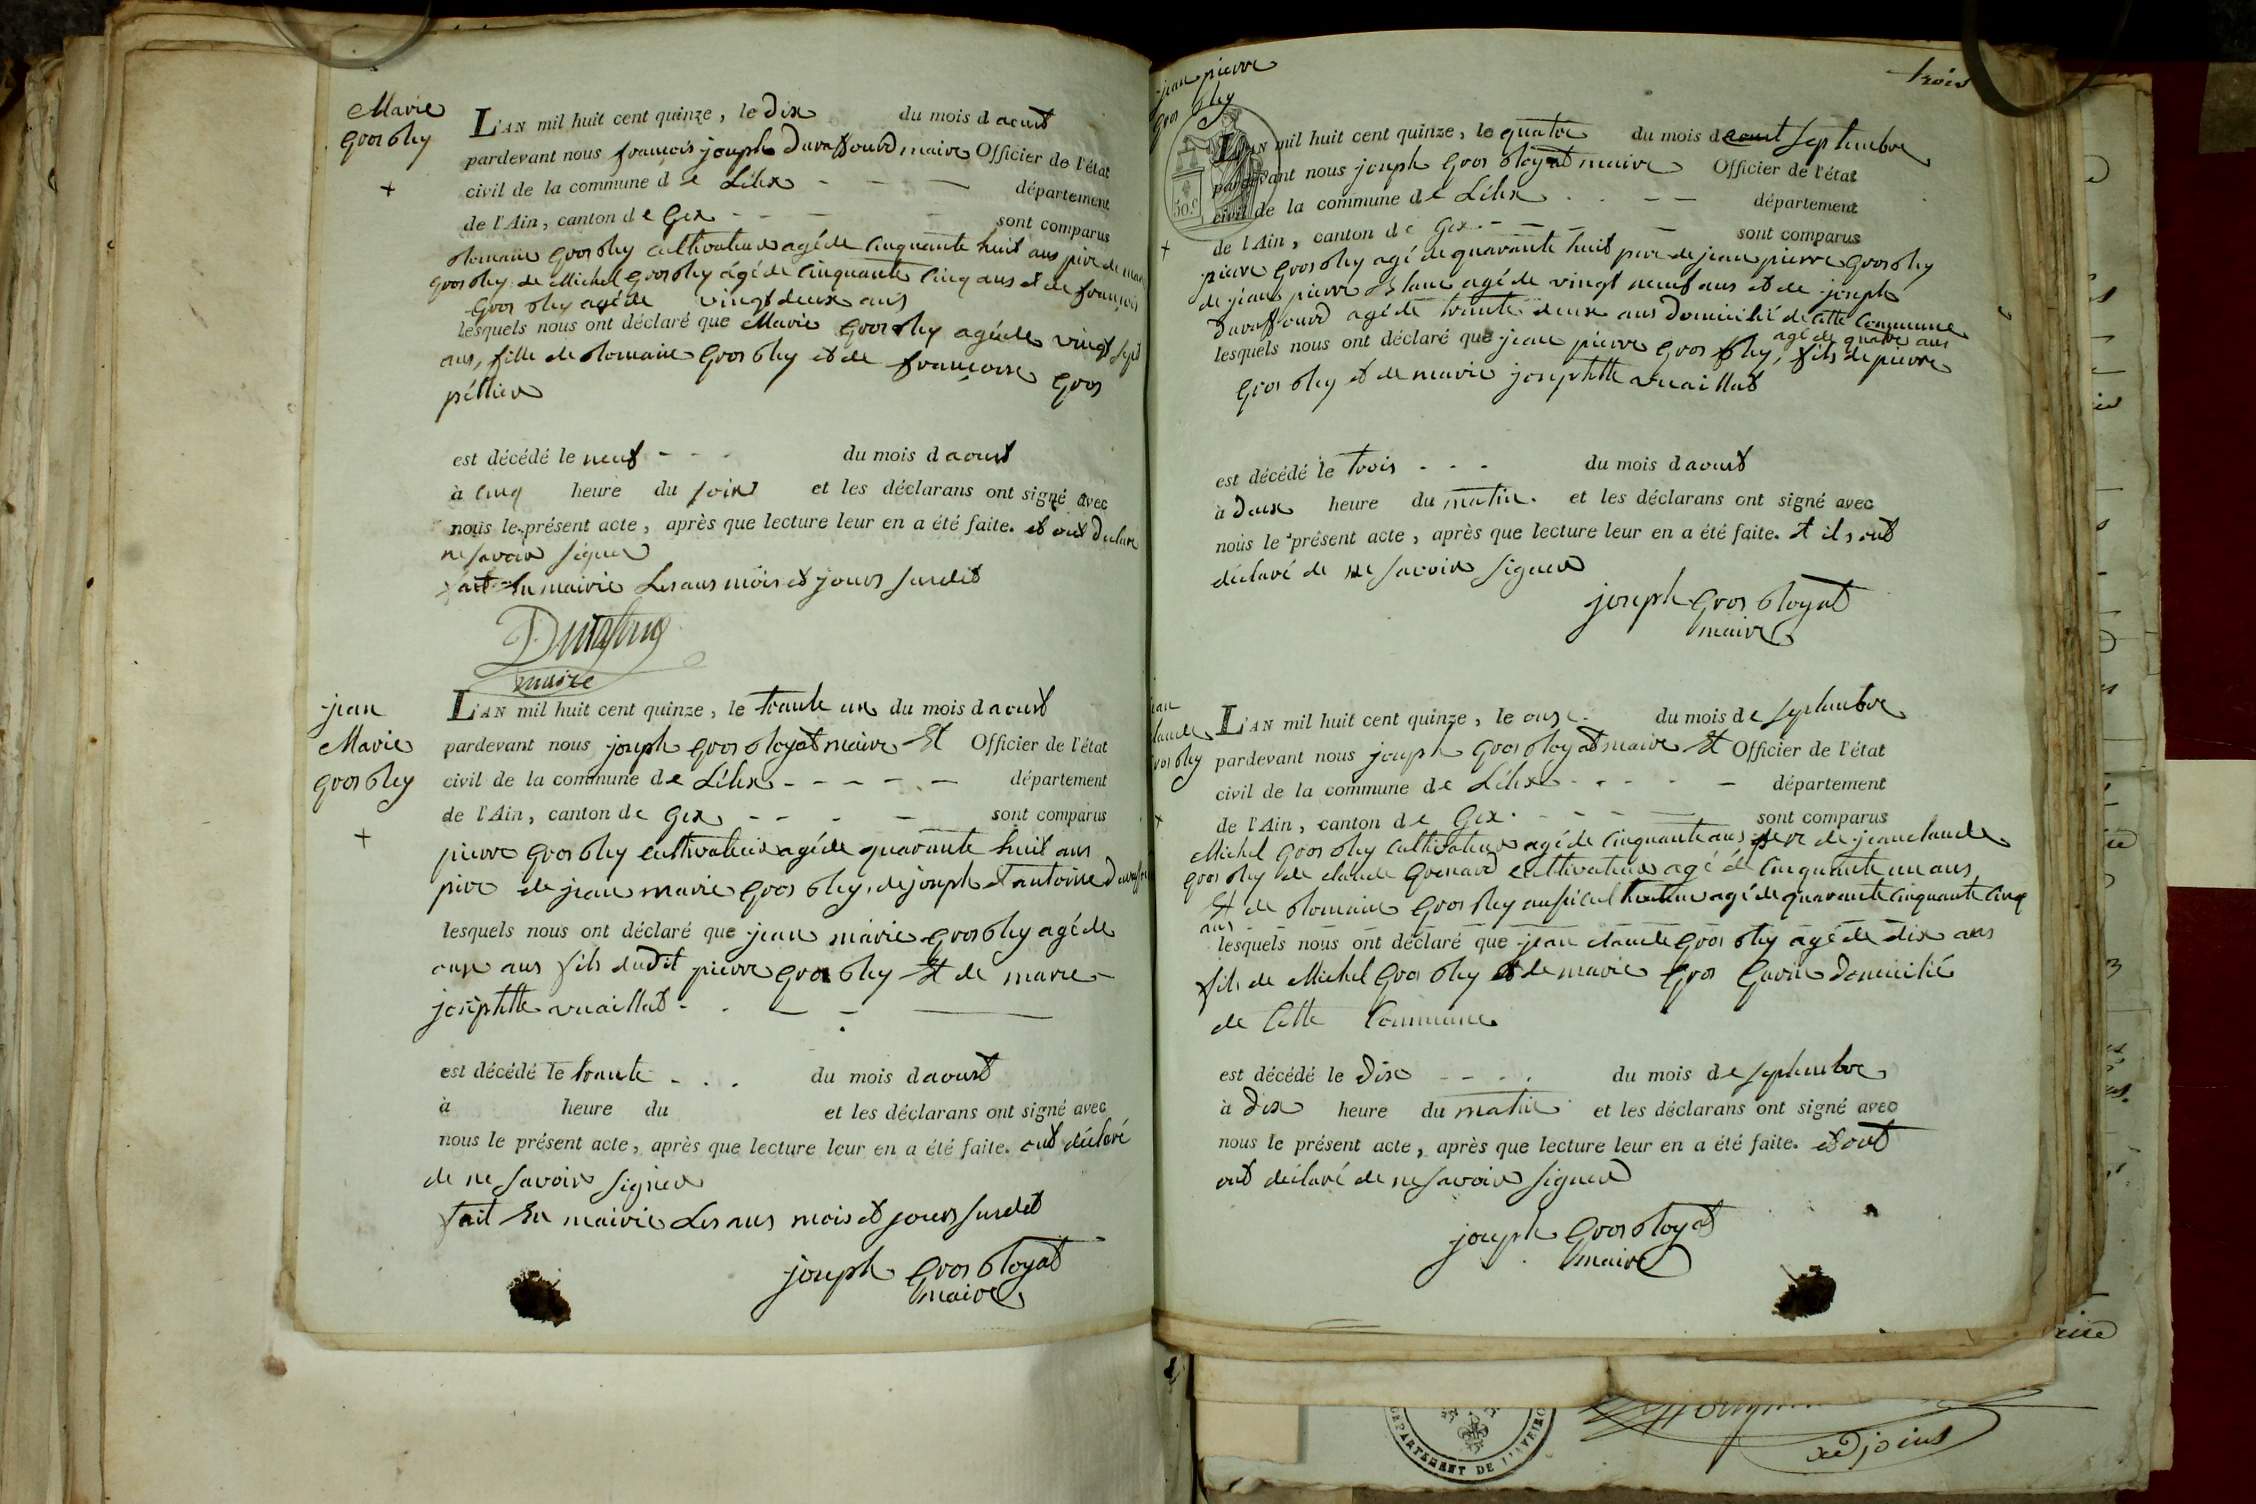 Marie
gros bley
+
L'AN mil huit cent quinze, le dix du mois d aoust
pardevant nous françois joseph Duraffourd maire Officier de l'état
civil de la commune de Lélex - - — département
de l'Ain, canton de Gex - - — - sont comparus
Romain gros bley cultivateur agé de cinquante huit ans pire de
gros bley de Michel gros bley agé de cinquante cinq ans et de françois
gros bley agé de vingt deux ans
lesquels nous ont déclaré que Marie gros bley agé de vingt sept
ans, fille de Romain gros bley et de françoise gros
péllier
est décédé le neuf - - - du mois d aoust
à cinq heure du soir et les déclarans ont signé avec
nous le présent acte, après que lecture leur en a été faite. et ont declaré
ne savoir signer
fait en mairie Les ans mois et jours susdit
maire
jean
Marie
gros bley
+
L'AN mil huit cent quinze, le trante un du mois d aoust
pardevant nous joseph gros Royat maire Et Officier de l'état
civil de la commune de Lélex - - - - - département
de l'Ain, canton de Gex - - - — sont comparus
pierre gros bley cultivateur agé de quarante huit ans
pire de jean marie gros bley, de joseph et antoine
lesquels nous ont déclaré que jean marie gros bley agé de
onze ans fils dudit pierre gros bley Et de marie
joseptette vuaillat - - — - —
est décédé le trante - - - du mois d aoust
à heure du et les déclarans ont signé avec
nous le présent acte, après que lecture leur en a été faite. ont déclaré
de ne savoir signer
fait En mairie Les ans mois et jours susdit
joseph gros Royat
maire
trois
jean pierre
gros bley
+
30.c
L'AN mil huit cent quinze, le quatre du mois d aout septembre
pardevant nous joseph gros Royat maire Officier de l'état
civil de la commune de Lélex . . — — département
de l'Ain, canton de Gex - — - — sont comparus
pierre gros bley agé de quarante huit pere de jean pierre gros bley
de jean pierre agé de vingt neuf ans et de joseph
Duraffourd agé de trante deux ans domicilié de cette commune
agé de quatre ans
lesquels nous ont déclaré que jean pierre gros bley, fils de pierre
gros bley et de marie joseptette vuaillat
est décédé le trois - - - du mois d aoust
à deux heure du matin. et les déclarans ont signé avec
nous le présent acte, après que lecture leur en a été faite. et ils ont
déclaré de ne savoir signer
joseph gros Royat
maire
jean
claude
gros bley
+
L'AN mil huit cent quinze, le onze. du mois de septembre
pardevant nous joseph gros Royat maire Et Officier de l'état
civil de la commune de Lélex - - - - — département
de l'Ain, canton de Gex. - - - — sont comparus
Michel gros bley cultivateur agé de cinquante ans pere de jean claude
gros bley de claude grenard cultivateur agé de cinquante un ans
Et de Romain gros bley agé de quarante cinquante cinq
ans
lesquels nous ont déclaré que jean claude gros bley agé de dix ans
fils de Michel gros bley et de marie gros gurin domicilié
de cette commune
est décédé le dix - - - . du mois de septembre
à dix heure du matin et les déclarans ont signé avec
nous le présent acte, après que lecture leur en a été faite. et ont
ont déclaré de ne savoir signer
joseph gros Royat
maire
DEPARTEMENT DE
adjoint